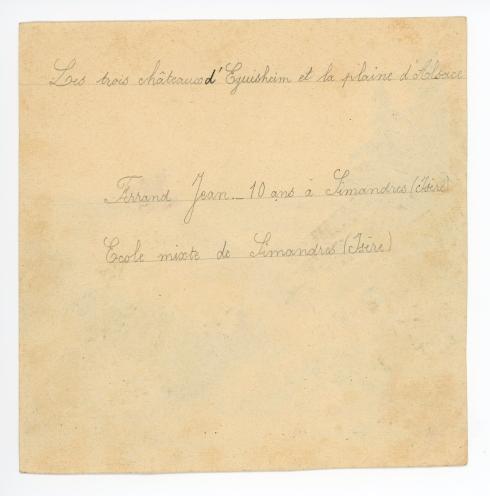 Les trois châteaux d'Eguisheim et la plaine d'Alsace
Ferrand Jean _ 10 ans à Simandres (Isère)
Ecole mixte de Simandres (Isère)